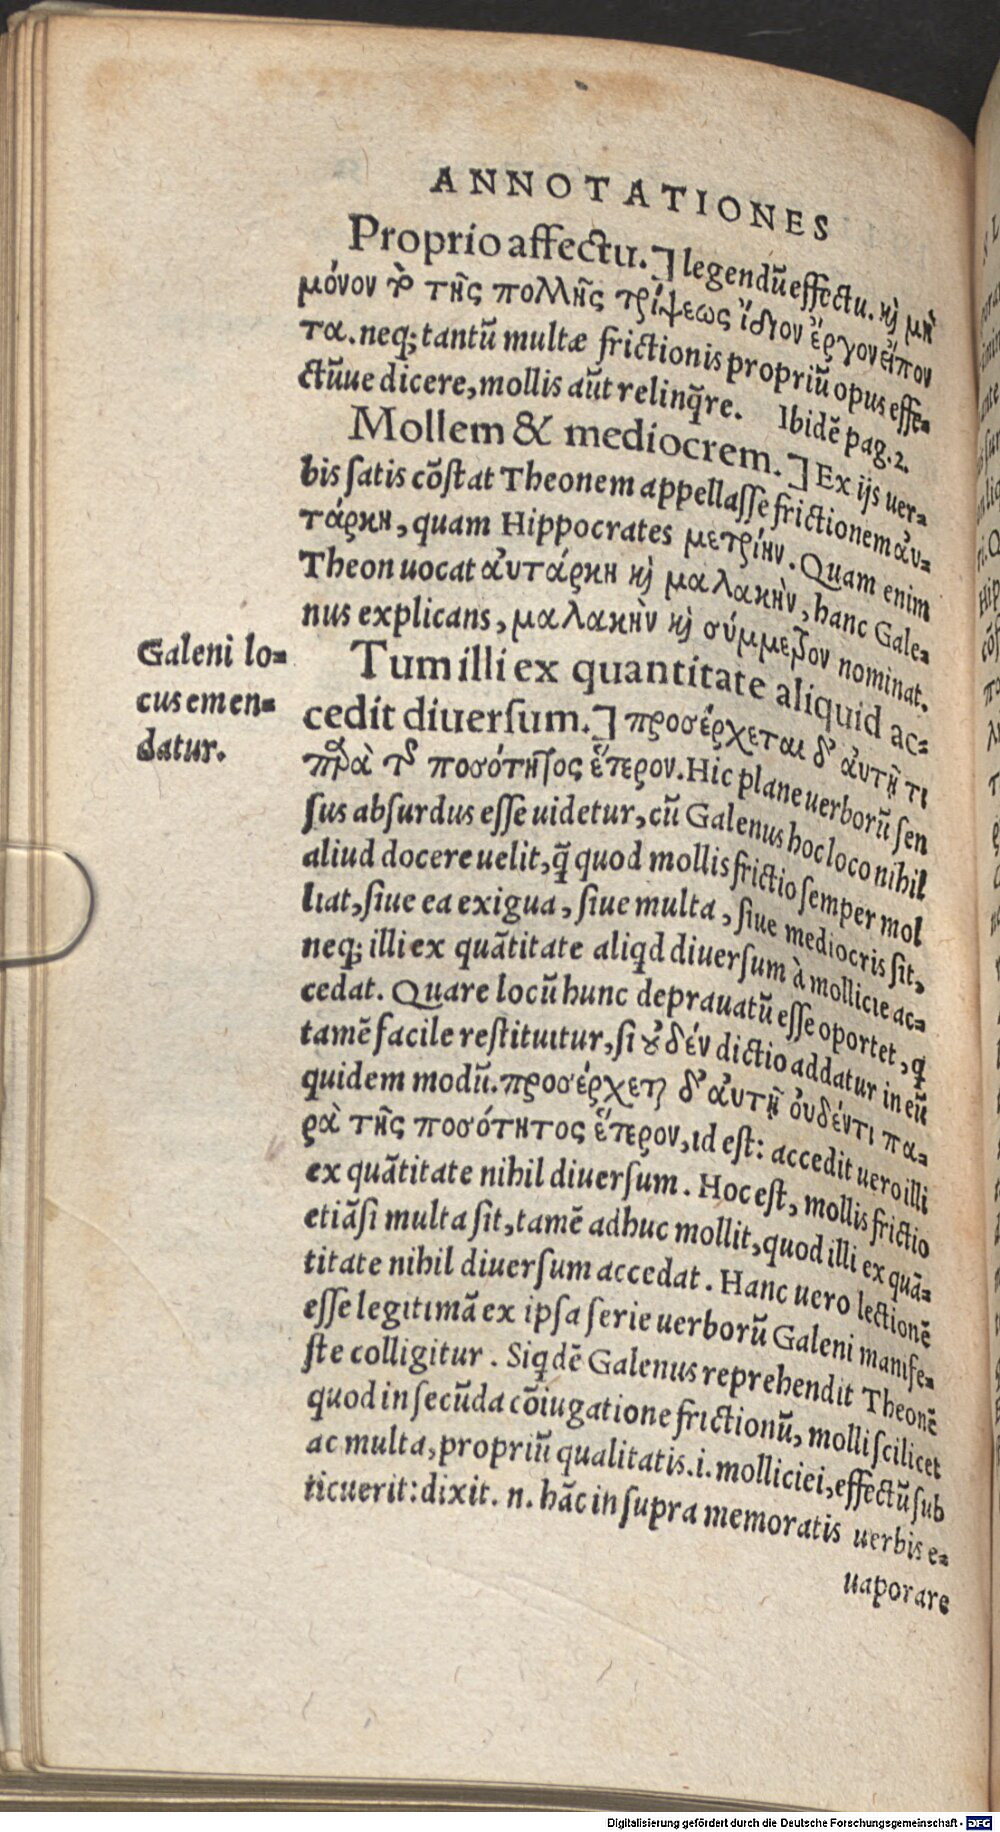 ANNOTATIONES
Proprio affectu.] legendũ effectu. κỳ μὴ
μόνον τὸ τῆς πολλῆς τρίψεως ἴδιον ἔργον εἴπον
τα. neq; tantũ multæ frictionis propriũ opus effe-
ctũue dicere, mollis aũt relinq̃re. Ibidẽ pag. 2.
Mollem & mediocrem.] Ex ijs uer-
bis satis cõstat Theonem appellasse frictionem ἀυ-
τάρκη, quam Hippocrates μετρίην. Quam enim
Theon uocat ἀυτάρκη κỳ μαλακὴν, hanc Gale-
nus explicans, μαλακὴν κỳ σύμμετρον nominat.
Galeni lo-
cus emen-
datur.
Tum illi ex quantitate aliquid ac-
cedit diuersum.] προσέρχεται δ' ἀυτῇ τι
παρὰ τῆς ποσότητος ἕτερον. Hic plane uerborũ sen
sus absurdus esse uidetur, cũ Galenus hoc loco nihil
aliud docere uelit, q̃ quod mollis frictio semper mol
liat, siue ea exigua, siue multa, siue mediocris sit,
neq; illi ex quãtitate aliqd diuersum à mollicie ac-
cedat. Quare locũ hunc deprauatũ esse oportet, q
tamẽ facile restituitur, si ȣδέν dictio addatur in eũ
quidem modũ. προσέρχεται δ' ἀυτῇ ὀυδέν τι πα-
ρὰ τῆς ποσότητος ἕτερον, id est: accedit uero illi
ex quãtitate nihil diuersum. Hoc est, mollis frictio
etiãsi multa sit, tamẽ adhuc mollit, quod illi ex quã-
titate nihil diuersum accedat. Hanc uero lectionẽ
esse legitimã ex ipsa serie uerborũ Galeni manife-
ste colligitur. Siqdẽ Galenus reprehendit Theonẽ
quod in secũda cõiugatione frictionũ, molli scilicet
ac multa, propriũ qualitatis .i. molliciei, effectũ sub
ticuerit: dixit .n. hãc in supra memoratis uerbis e-
uaporare
Digitalisierung gefördert durch die Deutsche Forschungsgemeinschaft - DFG